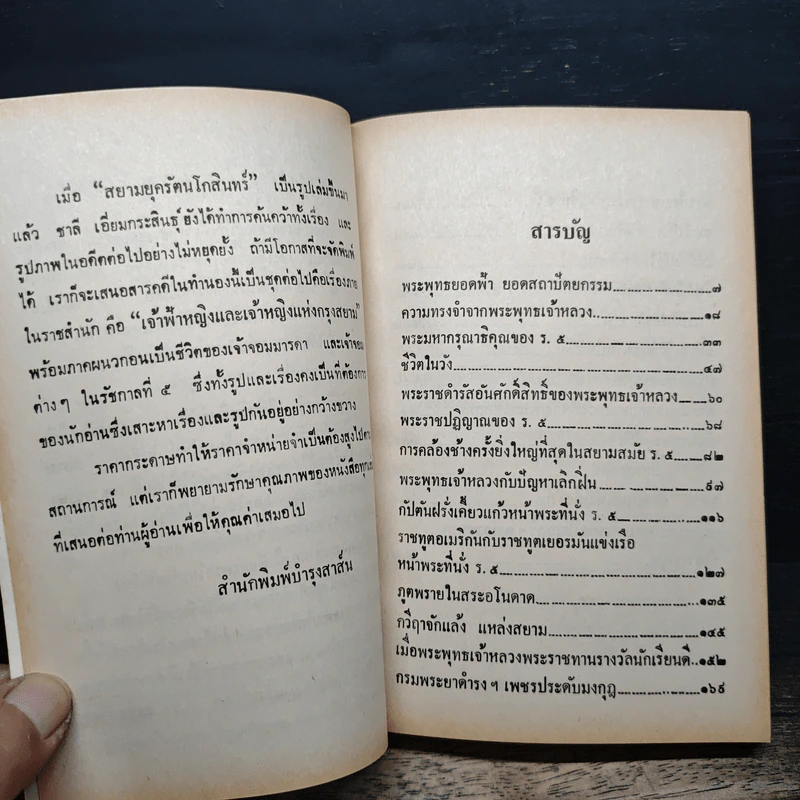 เมื่อ “สยามยุครัตนโกสินทร์” เป็นรูปเล่มขึ้นมา
แล้ว ชาลี เอี่ยมกระสินธุ์ ยังได้ทำการค้นคว้าทั้งเรื่อง และ
รูปภาพในอดีตต่อไปอย่างไม่หยุดยั้ง ถ้ามีโอกาสที่จะจัดพิมพ์
ได้ เราก็จะเสนอสารคดีในทำนองนี้เป็นชุดต่อไปคือเรื่องภาย
ในราชสำนัก คือ “เจ้าฟ้าหญิงและเจ้าหญิงแห่งกรุงสยาม”
พร้อมภาคผนวกอนเป็นชีวิตของเจ้าจอมมารดา และเจ้าจอม
ต่างๆ ในรัชกาลที่ ๕ ซึ่งทั้งรูปและเรื่องคงเป็นที่ต้องการ
ของนักอ่านซึ่งเสาะหาเรื่องและรูปกันอยู่อย่างกว้างขวาง
ราคากระดาษทำให้ราคาจำหน่ายจำเป็นต้องสูงไปตาม
สถานการณ์ แต่เราก็พยายามรักษาคุณภาพของหนังสือทุกเล่ม
ที่เสนอต่อท่านผู้อ่านเพื่อให้คุณค่าเสมอไป
สำนักพิมพ์บำรุงสาส์น
สารบัญ
พระพุทธยอดฟ้า ยอดสถาปัตยกรรม ๗
ความทรงจำจากพระพุทธเจ้าหลวง ๑๘
พระมหากรุณาธิคุณของ ร. ๕ ๓๓
ชีวิตในวัง ๔๗
พระราชดำรัสอันศักดิ์สิทธิ์ของพระพุทธเจ้าหลวง ๖๐
พระราชปฏิญาณของ ร. ๕ ๖๘
การคล้องช้างครั้งยิ่งใหญ่ที่สุดในสยามสมัย ร. ๕ ๘๒
พระพุทธเจ้าหลวงกับปัญหาเลิกฝิ่น ๙๗
กัปตันฝรั่งเคี้ยวแก้วหน้าพระที่นั่ง ร. ๕ ๑๑๖
ราชทูตอเมริกันกับราชทูตเยอรมันแข่งเรือ
หน้าพระที่นั่ง ร. ๕ ๑๒๗
ภูตพรายในสระอโนดาด ๑๓๕
กวีฤาจักแล้ง แหล่งสยาม ๑๔๕
เมื่อพระพุทธเจ้าหลวงพระราชทานรางวัลนักเรียนดี ๑๕๒
กรมพระยาดำรง ฯ เพชรประดับมงกุฎ ๑๖๙